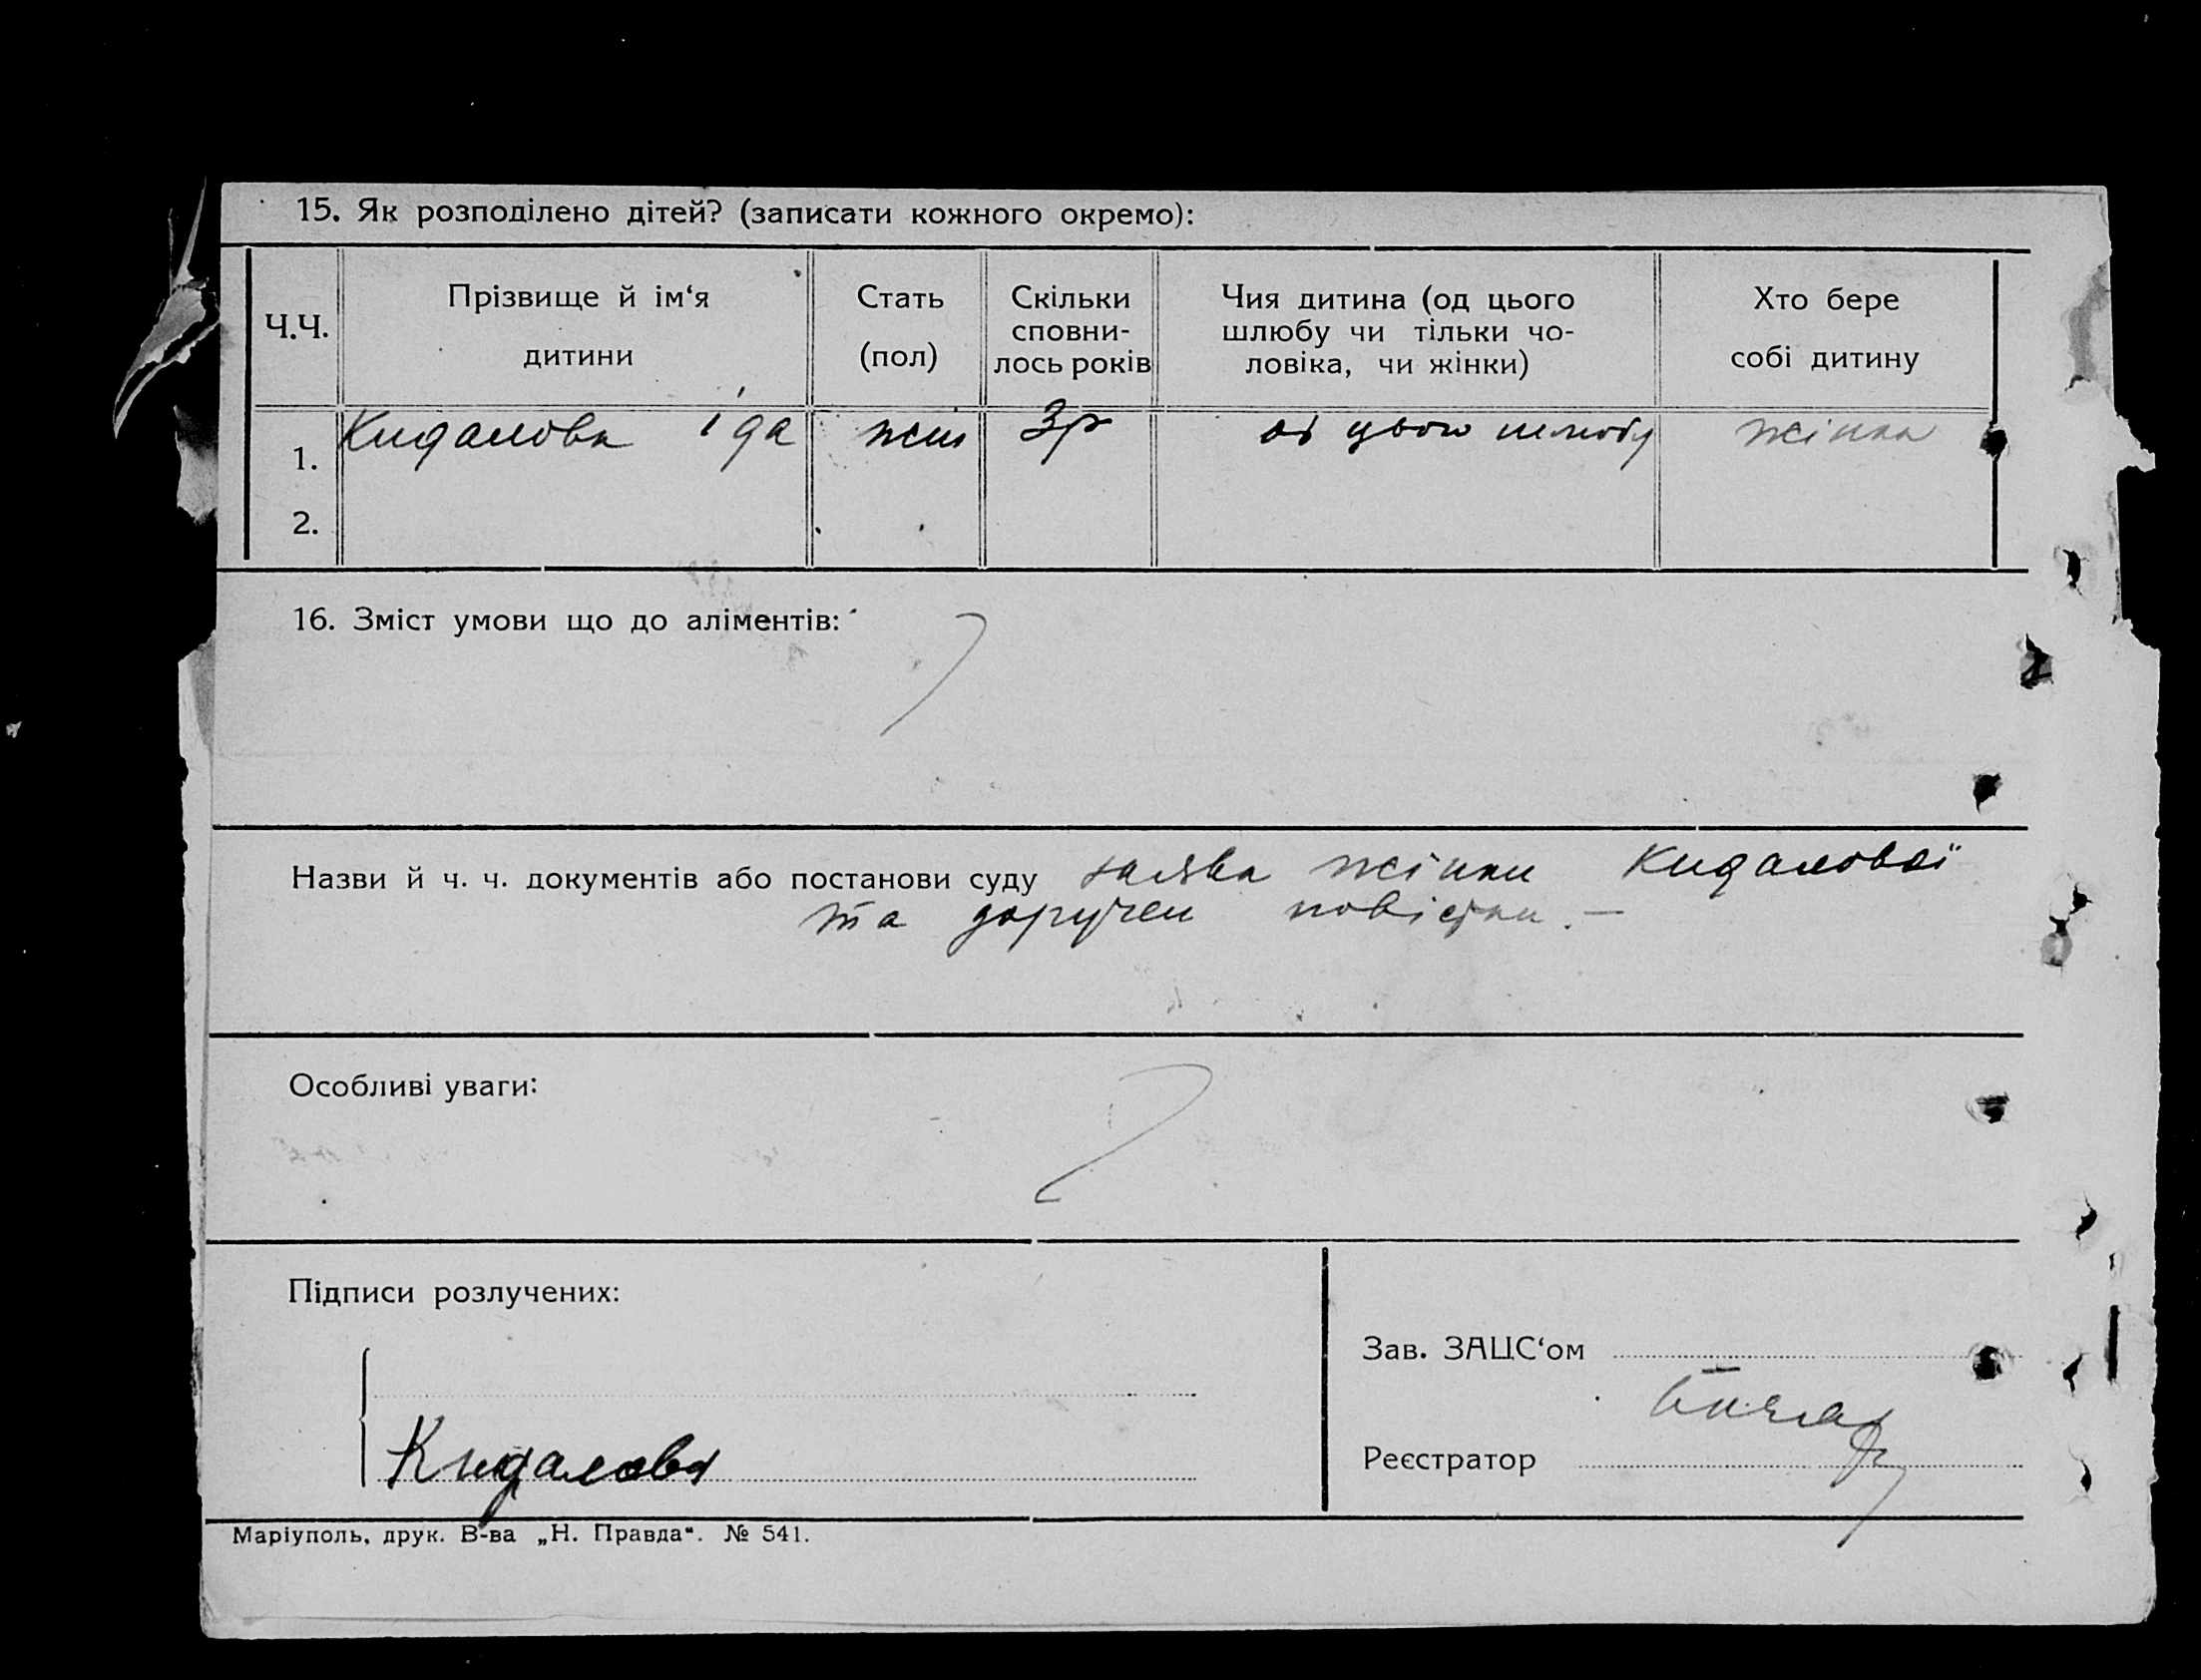 15. Як розподілено дітей? (записати кожного окремо):
Ч.Ч.
Прізвище й ім‘я
дитини
Стать
(пол)
Скільки
сповни-
лось років
Чия дитина (од цього
шлюбу чи тільки чо-
ловіка, чи жінки)
Хто бере
собі дитину
1. Кидалова Іда жін 3р од цього шлюбу жінка
2.
16. Зміст умови що до аліментів:
Назви й ч. ч. документів або постанови суду заява жінки Кидалової
та доручен повістки. —
Особливі уваги:
Підписи розлучених:
Кидалова
Зав. ЗАЦС‘ом
Реєстратор
Маріуполь, друк. В-ва „Н. Правда“. № 541.